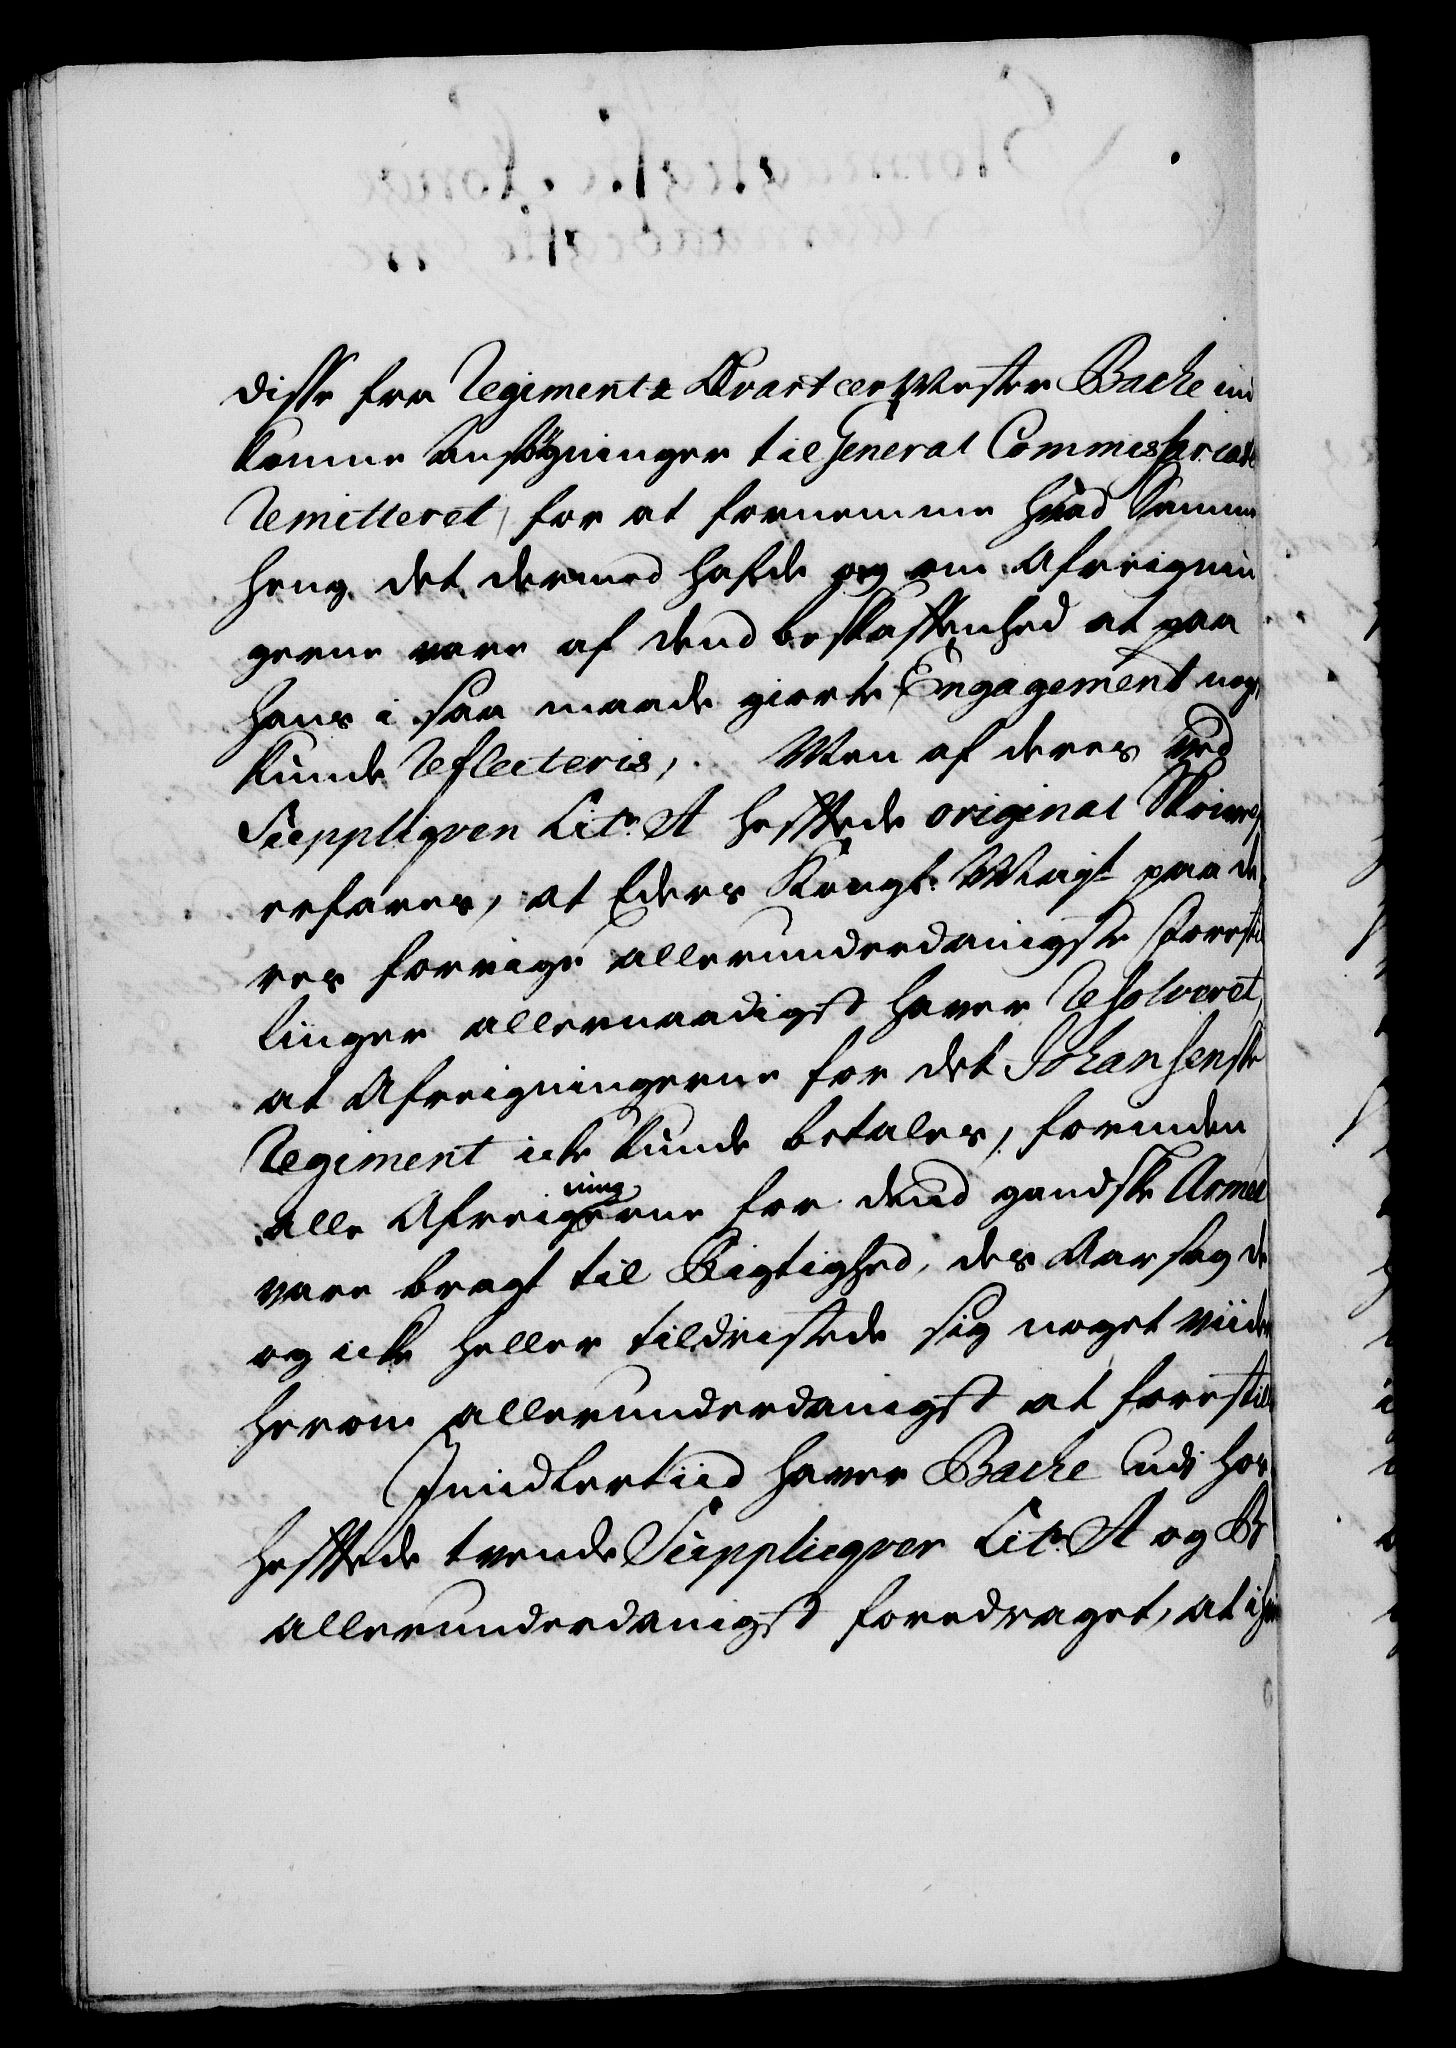 disse fra Regiments Qvarteer Mester Backe ind
komne Ansøgninger til General Commissariatet
Remitteret, for at fornemme hvad Sammen
heng det dermed hafde og om Afreignin
gerne vare af dend beskaffenhed at paa
hans i saa maade giorte Engagement noget
kunde Reflecteris, Men af deres ved
Suppliqven Litr. A heftede original Skrivelse
erfares, at Eders Kongl. Mayt paa de
res forrige allerunderdanigste Forestil
linger allernaadigst haver Resolveret,
at Afreigningerne for det Johansenske
Regiment icke kunde betales, forinden
alle Afreigningerne for dend gandske Armee
vare bragt til Rigtighed, des Aarsag de
og icke heller tildristede sig noget viidere
herom allerunderdanigst at forestille
Imidlertiid haver Backe udi hos
heftede tvende Suppliqver Litr. A og B
allerunderdanigst foredraget, at i